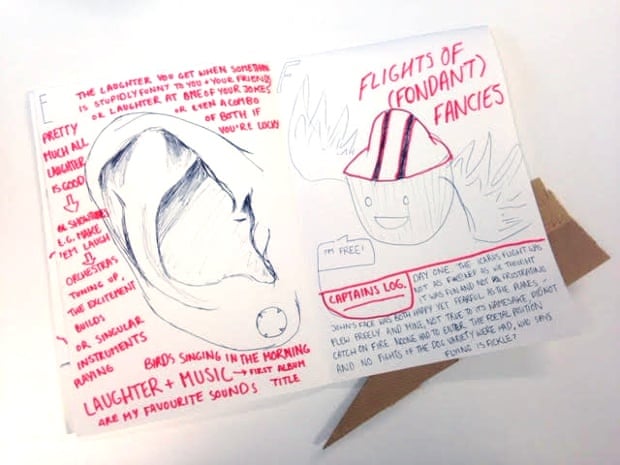 E
THE LAUGHTER YOU GET WHEN SOMETHING
IS STUPIDLY FUNNY TO YOU + YOUR FRIENDS
OR LAUGHTER AT ONE OF YOUR JOKES
OR EVEN A COMBO
OF BOTH IF
YOU'RE LUCKY
PRETTY
MUCH ALL
LAUGHTER
IS GOOD
OR SHOWTUNES
E.G. MAKE
'EM LAUGH
ORCHESTRAS
TUNING UP,
THE EXCITEMENT
BUILDS
OR SINGULAR
INSTRUMENTS
PLAYING
BIRDS SINGING IN THE MORNING
LAUGHTER + MUSIC → FIRST ALBUM
TITLE
ARE MY FAVOURITE SOUNDS
F
FLIGHTS OF
(FONDANT)
FANCIES
I'M FREE!
CAPTAIN'S LOG.
DAY ONE. THE ICARUS FLIGHT WAS
NOT AS FIRELIEF AS WE THOUGHT
IT WAS FUN AND NOT FRUSTRATING
JOHN'S FACE WAS BOTH HAPPY YET FEARFUL AS THE PLANES
FLEW FREELY AND MINE, NOT TRUE TO ITS NAMESAKE, DID NOT
CATCH ON FIRE. NOONE HAD TO ENTER THE FOETAL POSITION
AND NO FIGHTS OF THE DOG VARIETY WERE HAD, WHO SAYS
FLYING IS FICKLE?